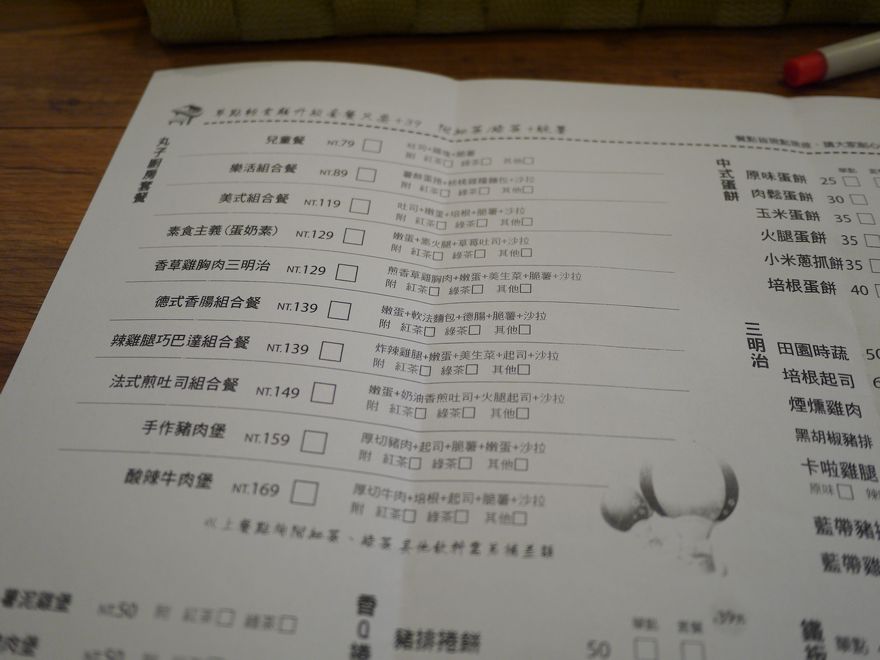 丸子廚房套餐
單點輕食類升級套餐只需+39 附紅茶/綠茶+脆薯
兒童餐 NT.79 □
附 紅茶□ 綠茶□ 其他□
樂活組合餐 NT.89 □
附 紅茶□ 綠茶□ 其他□
美式組合餐 NT.119 □ 吐司+嫩蛋+培根+脆薯+沙拉
附 紅茶□ 綠茶□ 其他□
素食主義(蛋奶素) NT.129 □ 嫩蛋+素火腿+草莓吐司+沙拉
附 紅茶□ 綠茶□ 其他□
香草雞胸肉三明治 NT.129 □ 煎香草雞胸肉+嫩蛋+美生菜+脆薯+沙拉
附 紅茶□ 綠茶□ 其他□
德式香腸組合餐 NT.139 □ 嫩蛋+軟法麵包+德腸+脆薯+沙拉
附 紅茶□ 綠茶□ 其他□
辣雞腿巧巴達組合餐 NT.139 □ 炸辣雞腿+嫩蛋+美生菜+起司+沙拉
附 紅茶□ 綠茶□ 其他□
法式煎吐司組合餐 NT.149 □ 嫩蛋+奶油香煎吐司+火腿起司+沙拉
附 紅茶□ 綠茶□ 其他□
手作豬肉堡 NT.159 □ 厚切豬肉+起司+脆薯+嫩蛋+沙拉
附 紅茶□ 綠茶□ 其他□
酸辣牛肉堡 NT.169 □ 厚切牛肉+培根+起司+脆薯+沙拉
附 紅茶□ 綠茶□ 其他□
以上餐點均附紅茶、綠茶 其他飲料需另補差額
薯泥雞堡 NT.50 附 紅茶□ 綠茶□
肉堡 NT.50 附 紅茶□ 綠茶□
單點 套餐
豬排捲餅 50 □ □
中式蛋餅
單點
原味蛋餅 25 □
肉鬆蛋餅 30 □
玉米蛋餅 35 □
火腿蛋餅 35 □
小米蔥抓餅 35 □
培根蛋餅 40 □
三明治
田園時蔬
培根起司
煙燻雞肉
黑胡椒豬排
卡啦雞腿
原味□
藍帶豬
藍帶雞
單點